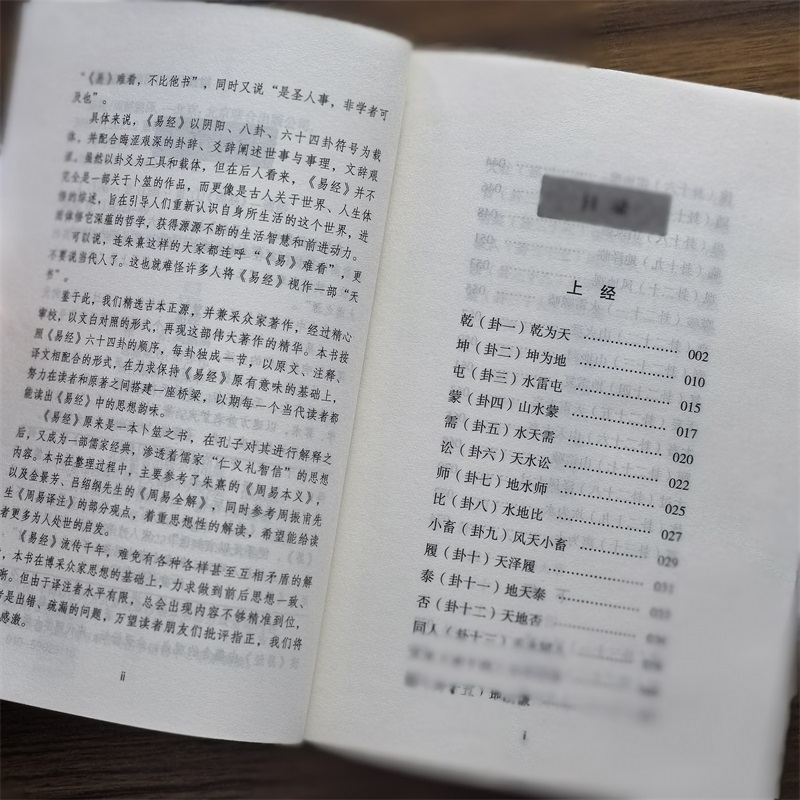 “《易》难看，不比他书”，同时又说“是圣人事，非学者可
及也”。
具体来说，《易经》以阴阳、八卦、六十四卦符号为载
体，并配合晦涩艰深的卦辞、爻辞阐述世事与事理，文辞艰
深。虽然以卦爻为工具和载体，但在后人看来，《易经》并不
完全是一部关于卜筮的作品，而更像是古人关于世界、人生体
悟的综述，旨在引导人们重新认识自身所生活的这个世界，进
而体悟它深蕴的哲学，获得源源不断的生活智慧和前进动力。
可以说，连朱熹这样的大家都连呼“《易》难看”，更
不要说当代人了。这也就难怪许多人将《易经》视作一部“天
书”。
鉴于此，我们精选古本正源，并兼采众家著作，经过精心
审校，以文白对照的形式，再现这部伟大著作的精华。本书按
照《易经》六十四卦的顺序，每卦独成一节，以原文、注释、
译文相配合的形式，在力求保持《易经》原有意味的基础上，
努力在读者和原著之间搭建一座桥梁，以期每一个当代读者都
能读出《易经》中的思想韵味。
《易经》原来是一本卜筮之书，在孔子对其进行解释之
后，又成为一部儒家经典，渗透着儒家“仁义礼智信”的思想
内容。本书在整理过程中，主要参考了朱熹的《周易本义》，
以及金景芳、吕绍纲先生的《周易全解》，同时参考周振甫先
生《周易译注》的部分观点，着重思想性的解读，希望能给读
者更多为人处世的启发。
《易经》流传千年，难免有各种各样甚至互相矛盾的解
，本书在博采众家思想的基础上，力求做到前后思想一致、
晰。但由于译注者水平有限，总会出现内容不够精准到位，
是出错、疏漏的问题，万望读者朋友们批评指正，我们将
感激。
ii
目录
上 经
乾（卦一）乾为天 002
坤（卦二）坤为地 010
屯（卦三）水雷屯 015
蒙（卦四）山水蒙 017
需（卦五）水天需 020
讼（卦六）天水讼 022
师（卦七）地水师 025
比（卦八）水地比 027
小畜（卦九）风天小畜 029
履（卦十）天泽履 031
泰（卦十一）地天泰 033
否（卦十二）天地否
同人（卦十三）
i